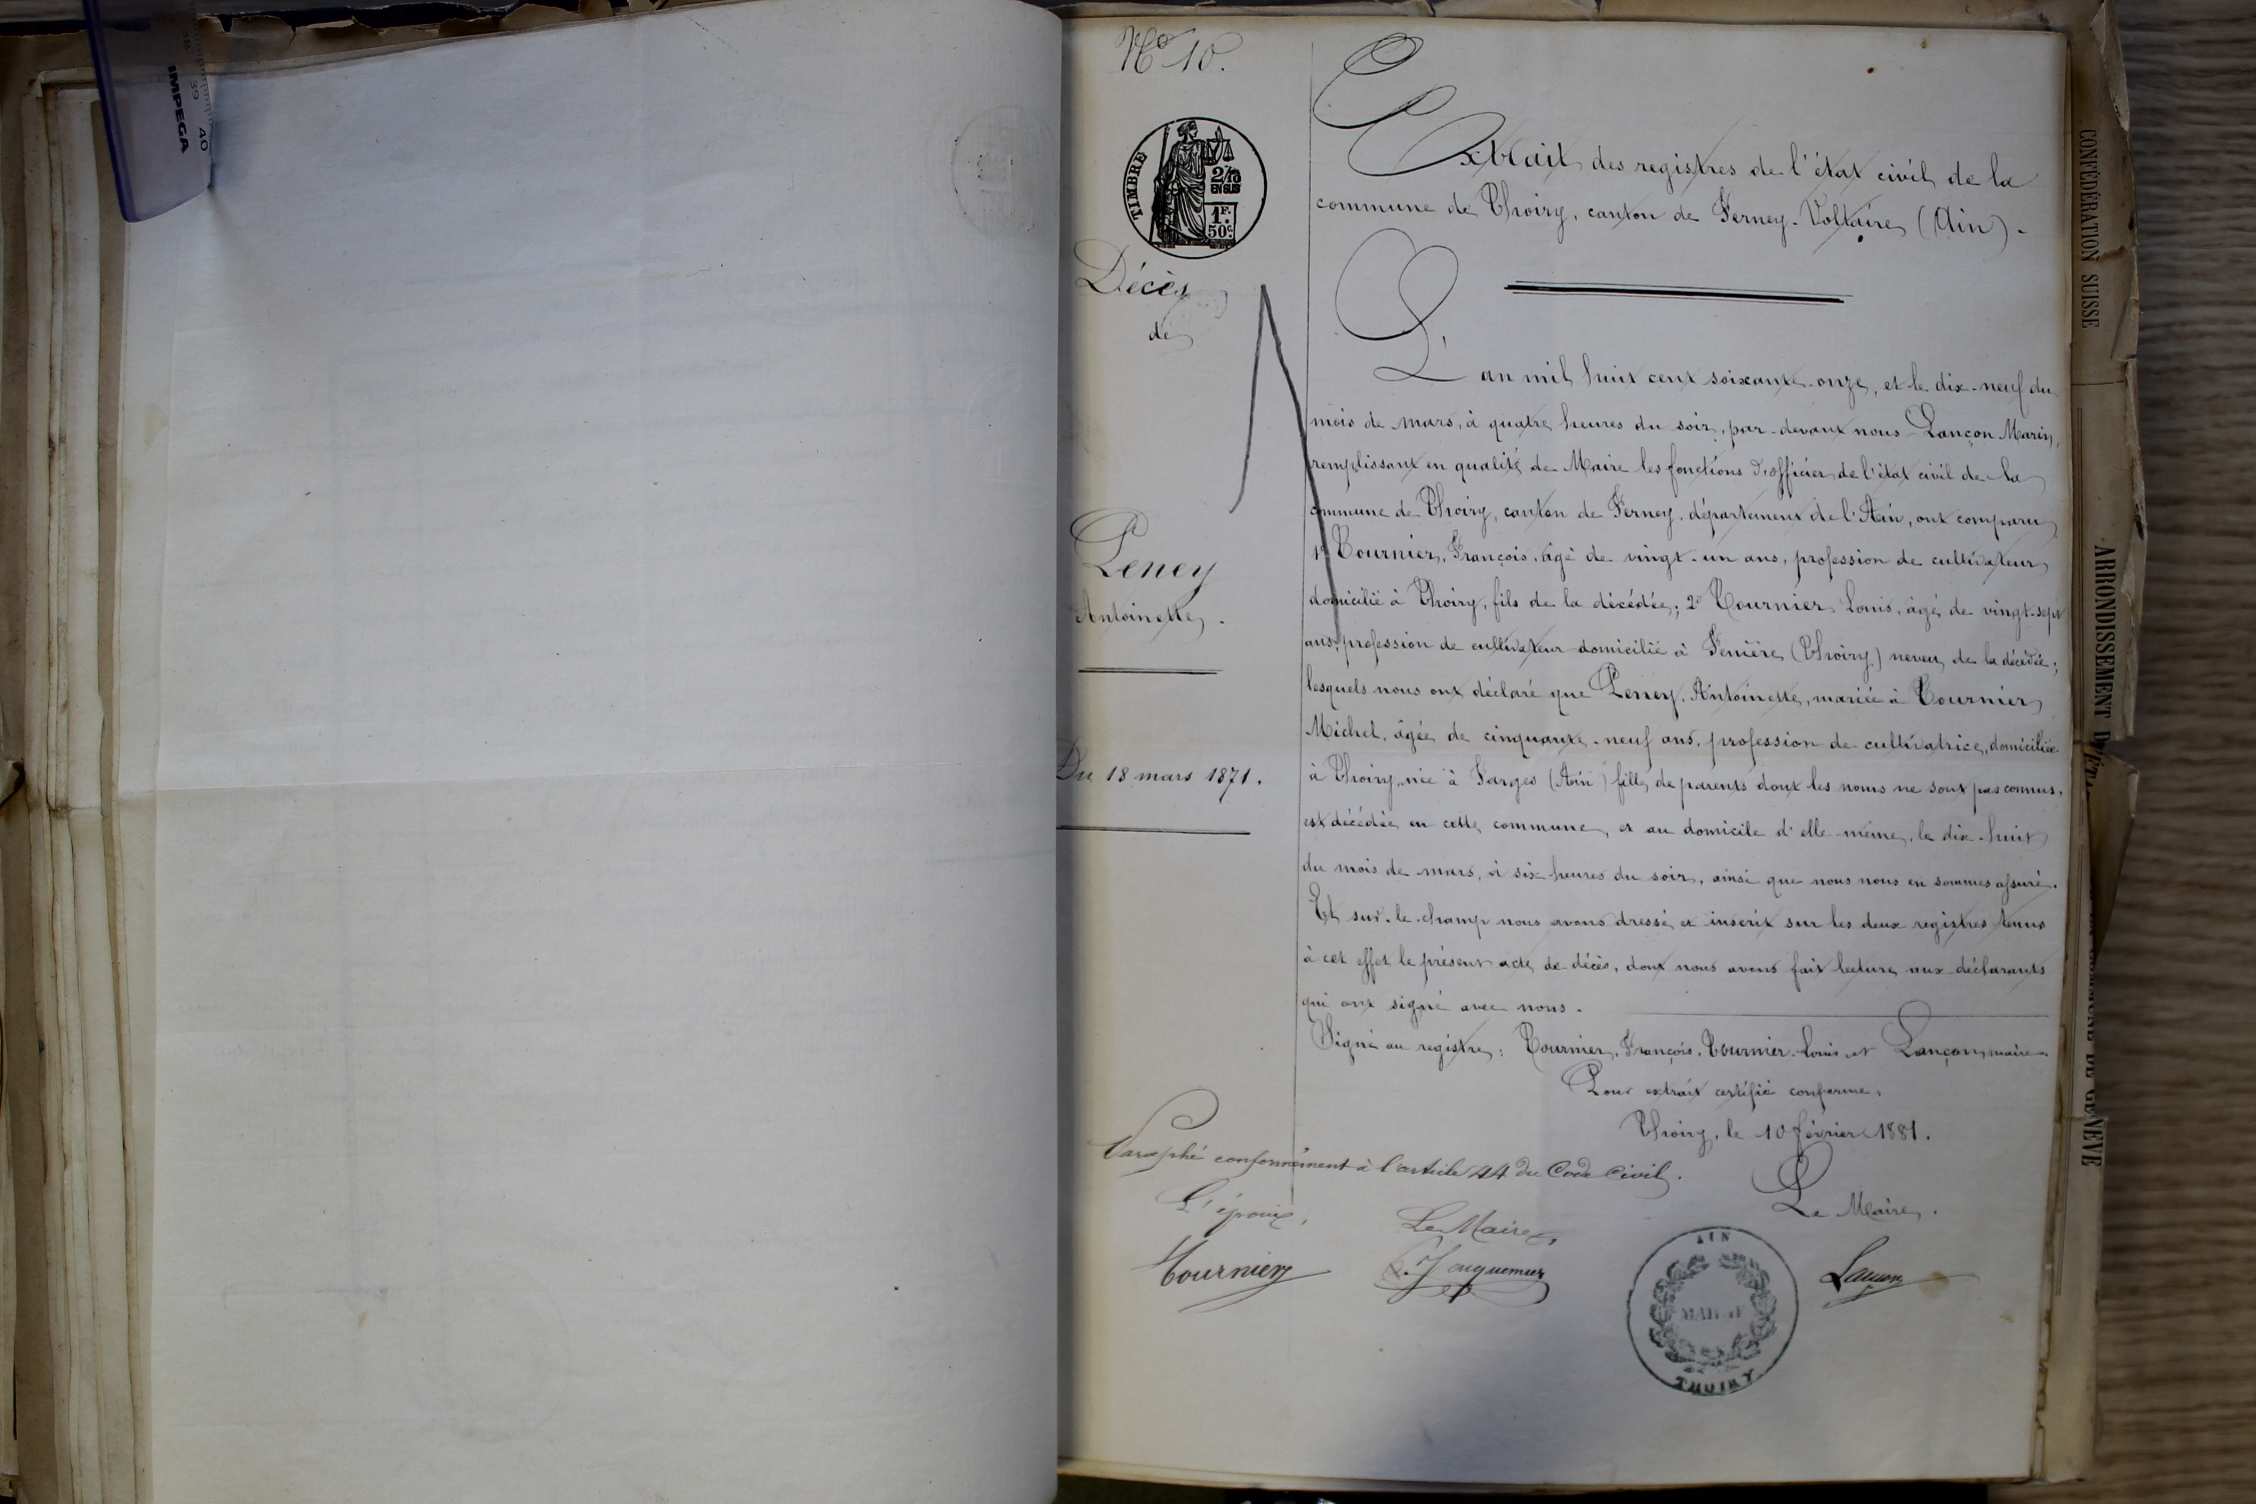 39 40
IMPEGA
No 10.
TIMBRE
2/10
EN SUS
1F.
50c.
Décès
de
Peney
Antoinette.
Du 18 mars 1871.
Extrait des registres de l'état civil de la
commune de Thoiry, canton de Ferney-Voltaire (Ain).
L'an mil huit cent soixante-onze, et le dix-neuf du
mois de mars, à quatre heures du soir, par-devant nous Lançon Marin,
remplissant en qualité de Maire les fonctions d'officier de l'état civil de la
commune de Thoiry, canton de Ferney, département de l'Ain, ont comparu
1o Tournier, François, âgé de vingt-un ans, profession de cultivateur
domicilié à Thoiry, fils de la décédée; 2o Tournier Louis, âgé de vingt-sept
ans, profession de cultivateur domicilié à Fenière (Thoiry) neveu de la décédée;
lesquels nous ont déclaré que Peney, Antoinette, mariée à Tournier
Michel, âgée de cinquante-neuf ans, profession de cultivatrice, domiciliée
à Thoiry, née à Farges (Ain) fille de parents dont les noms ne sont pas connus,
est décédée en cette commune, et au domicile d'elle-même, le dix-huit
du mois de mars, à six heures du soir, ainsi que nous nous en sommes assuré.
Et sur-le-champ nous avons dressé et inscrit sur les deux registres tenus
à cet effet le présent acte de décès, dont nous avons fait lecture aux déclarants
qui ont signé avec nous.
Signé au registre: Tournier, François, Tournier Louis et Lançon, maire.
Pour extrait certifié conforme,
Thoiry, le 10 février 1881.
Le Maire.
Lançon
Paraphé conformément à l'article 44 du Code Civil.
L'époux,
Tournier
Le Maire,
AIN
MAIRIE
THOIRY
CONFÉDÉRATION SUISSE
ARRONDISSEMENT D'ÉT
DE GENÈVE